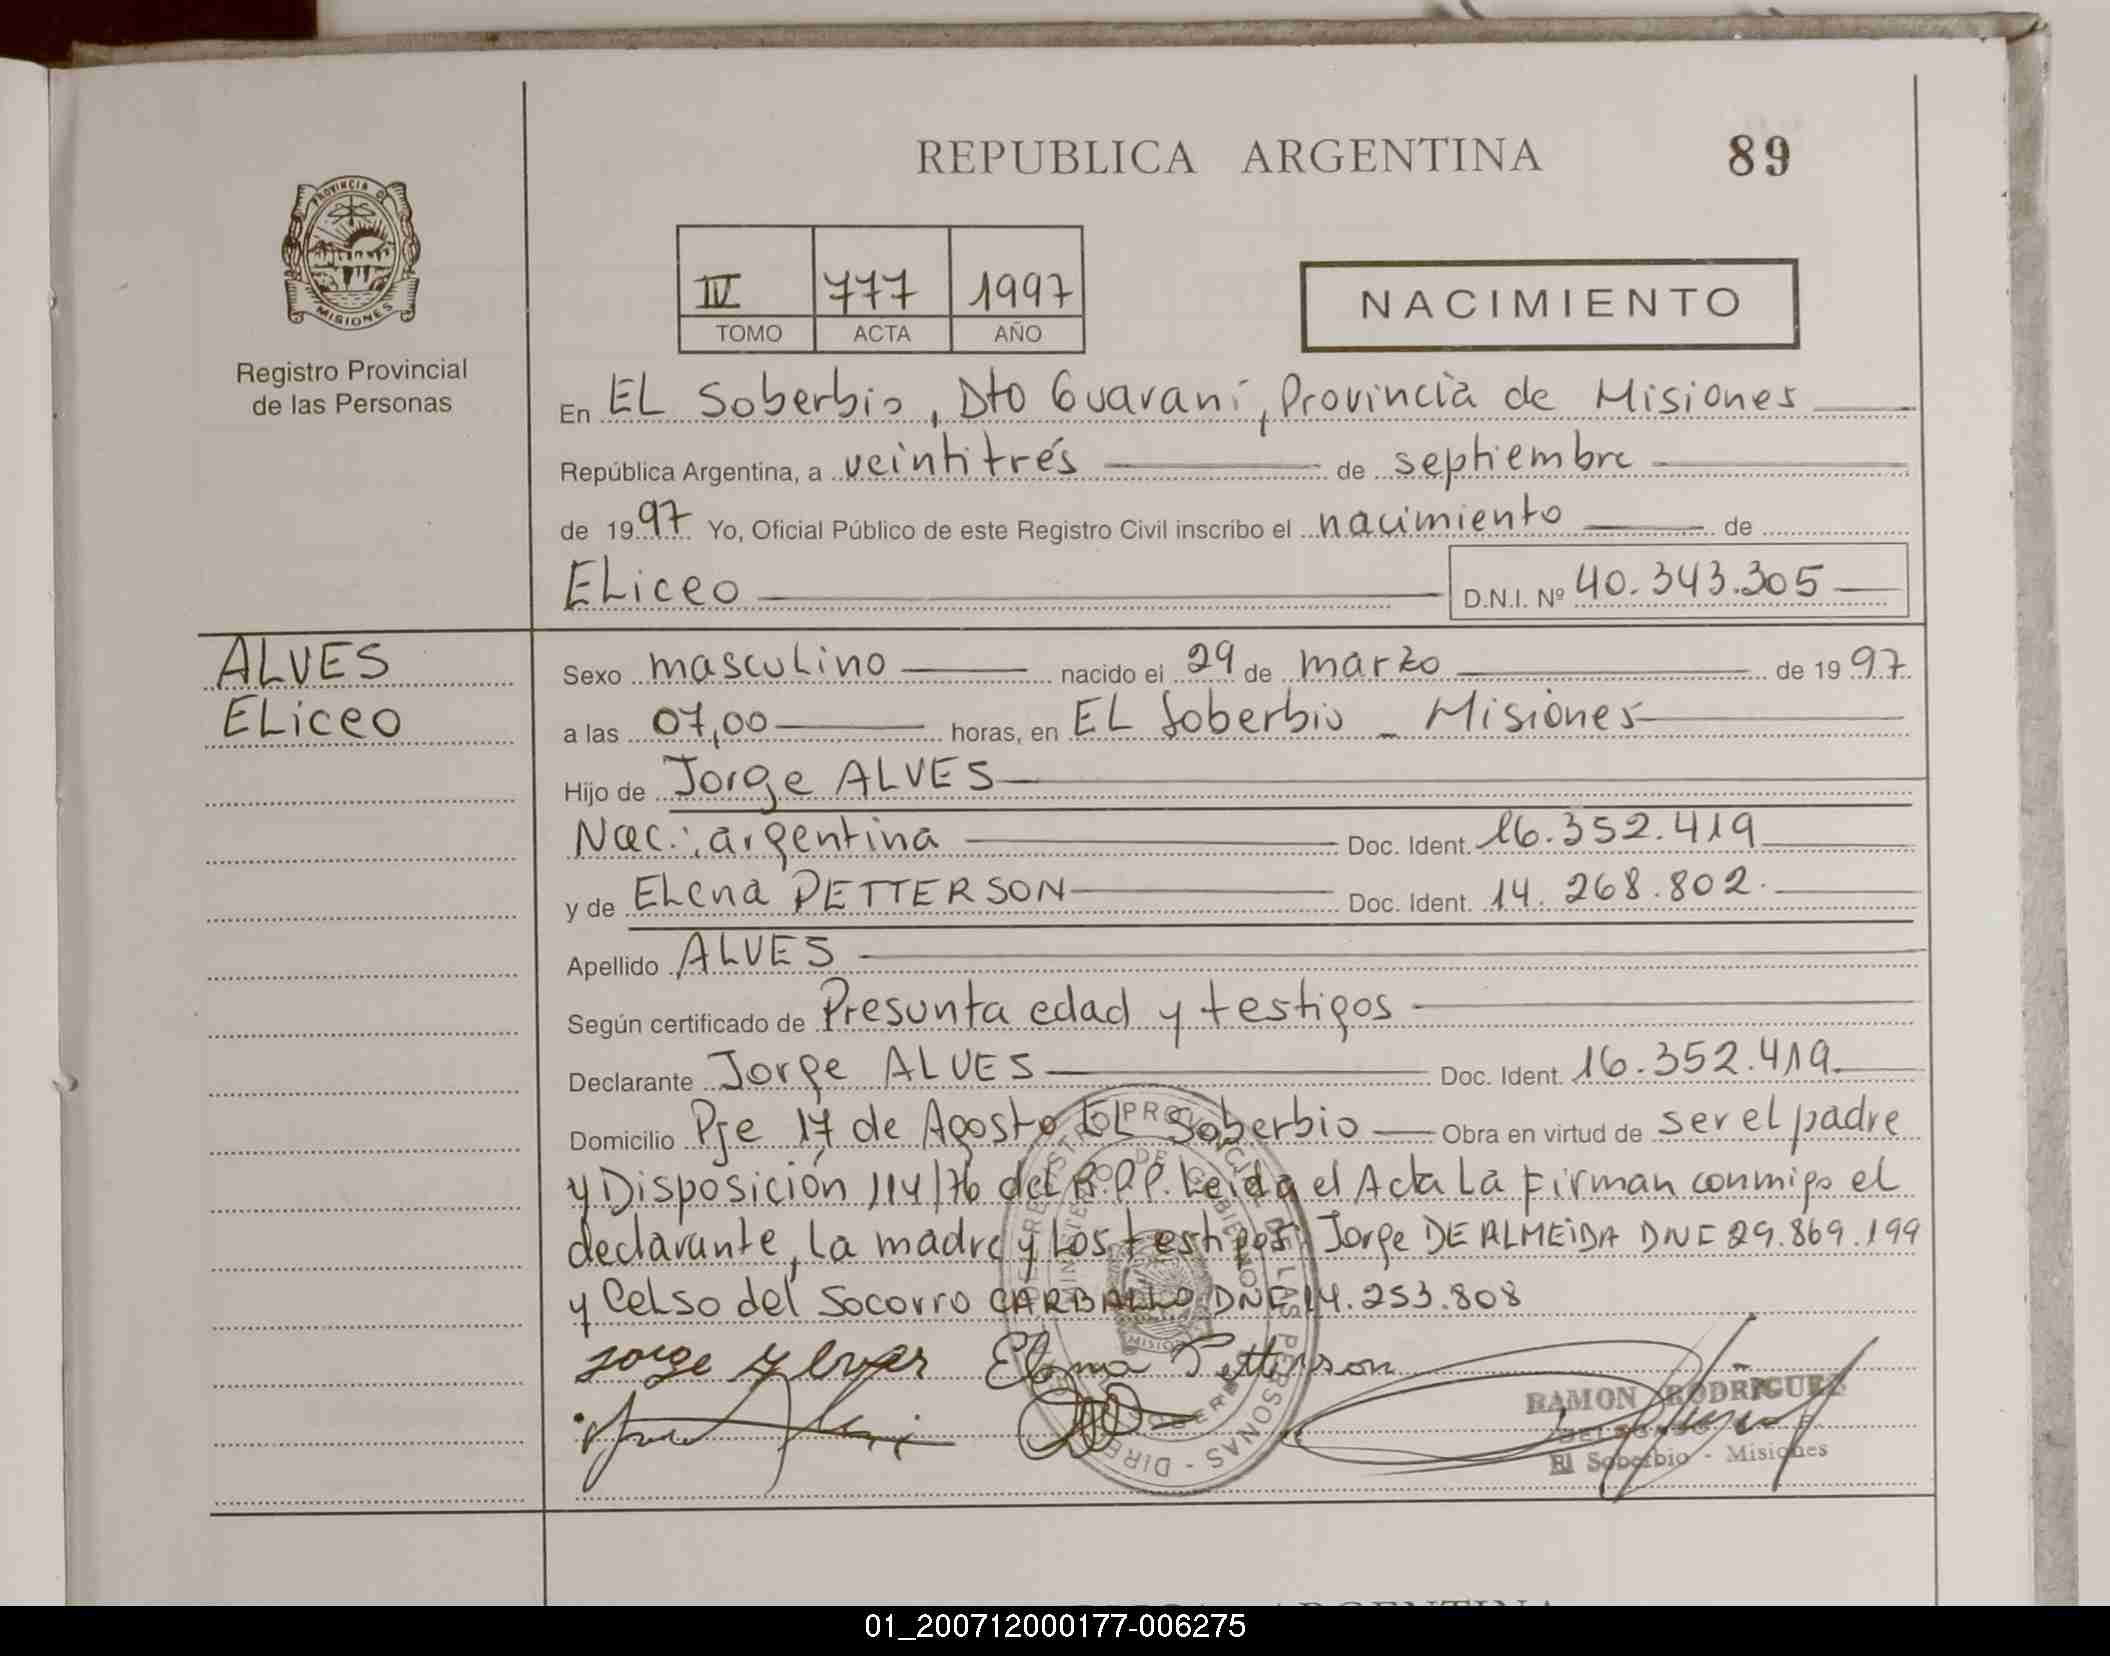 REPUBLICA ARGENTINA 89
PROVINCIA DE
MISIONES
Registro Provincial
de las Personas
IV 777 1997
TOMO ACTA AÑO
NACIMIENTO
En EL Soberbio, Dto Guaraní, Provincia de Misiones
República Argentina, a veintitrés de septiembre
de 1997 Yo, Oficial Público de este Registro Civil inscribo el nacimiento de
ELiceo D.N.I. Nº 40.343.305
ALVES
ELiceo
Sexo mascuLino nacido el 29 de marzo de 1997
a las 07,00 horas, en EL Soberbio - Misiones
Hijo de Jorge ALVES
Nac.: argentina Doc. Ident. 16.352.419
y de ELena PETTERSON Doc. Ident. 14.268.802.
Apellido ALVES
Según certificado de Presunta edad y testigos
Declarante Jorge ALVES Doc. Ident. 16.352.419
Domicilio Pje 17 de Agosto EL Soberbio Obra en virtud de ser el padre
y Disposición 114/76 del R.P.P. Leida el Acta La Firman conmigo el
declarante, La madre y Los testigos Jorge DE ALMEIDA DNI 29.869.199
y CeLso del Socorro CARBALLO DNI 14.253.808
Jorge Elena Petterson
RAMON RODRIGUEZ
El Soberbio - Misiones
01_200712000177-006275